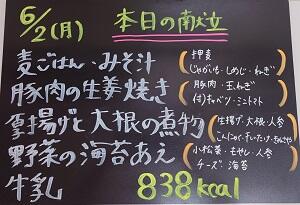 6/2(月) 本日の献立
麦ごはん・みそ汁
押麦
じゃがいも・しめじ・ねぎ
豚肉の生姜焼き
豚肉・玉ねぎ
付)キャベツ・ミニトマト
厚揚げと大根の煮物
生揚げ・大根・人参
こんにゃく・干しいたけ・
野菜の海苔あえ
小松菜・もやし・人参
チーズ・海苔
牛乳
838kcal